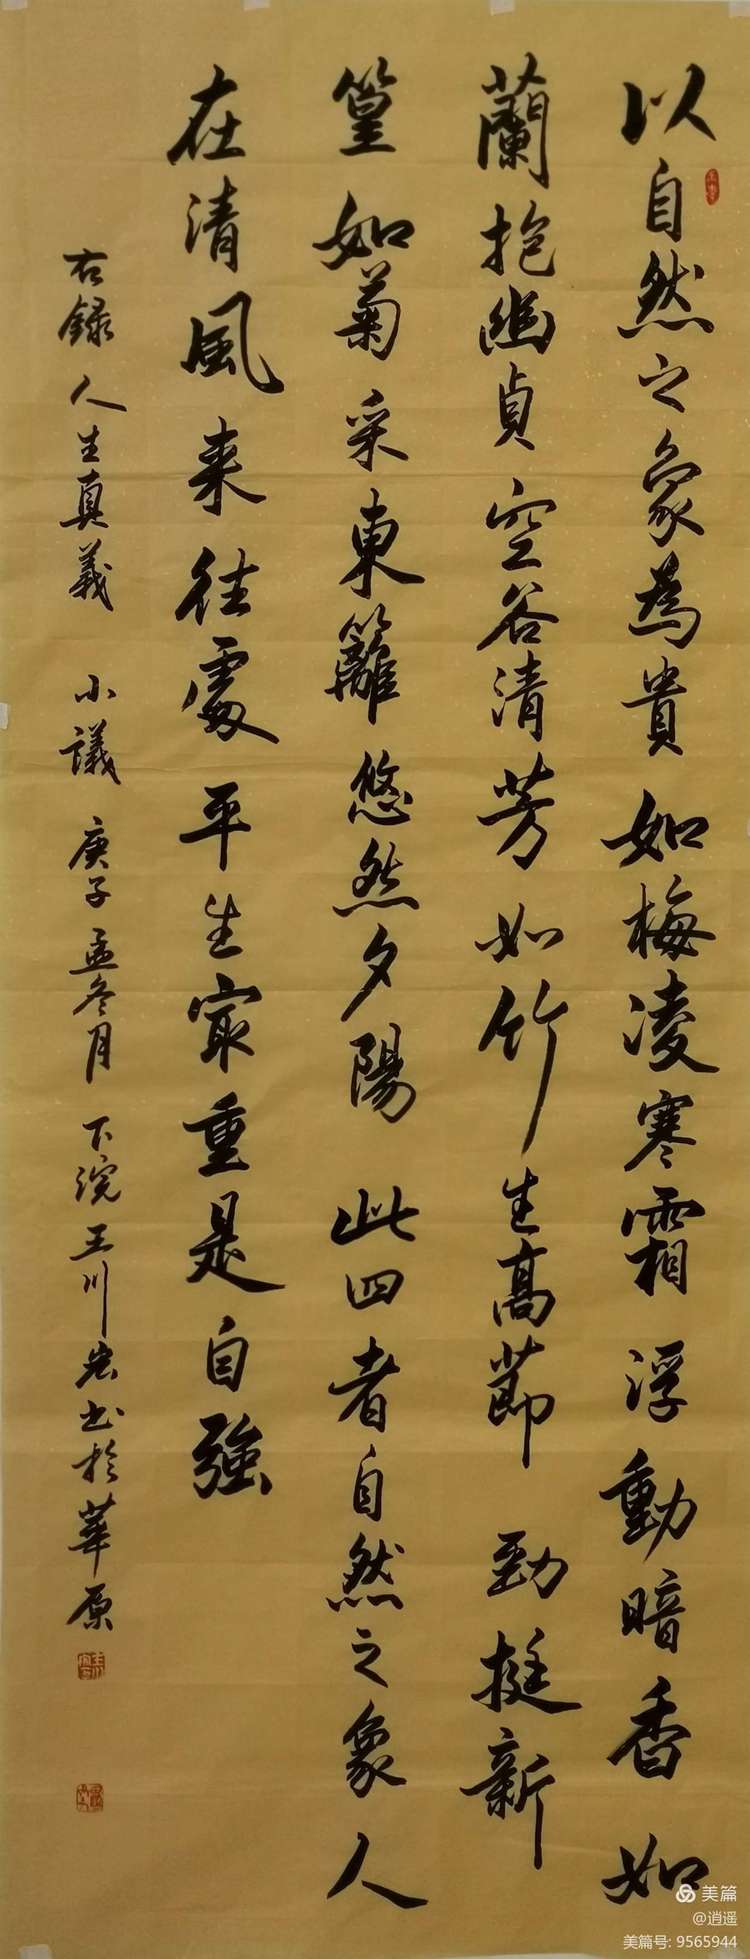 以自然之象為貴如梅凌寒霜浮動暗香如
蘭抱幽貞空谷清芳如竹生高節勁挺新
篁如菊采東籬悠然夕陽此四者自然之象人
在清風来往處平生寂重是自強
右録人生真義小議庚子孟冬月下浣王川宏书於華原
美篇
@逍遥
美篇号: 9565944